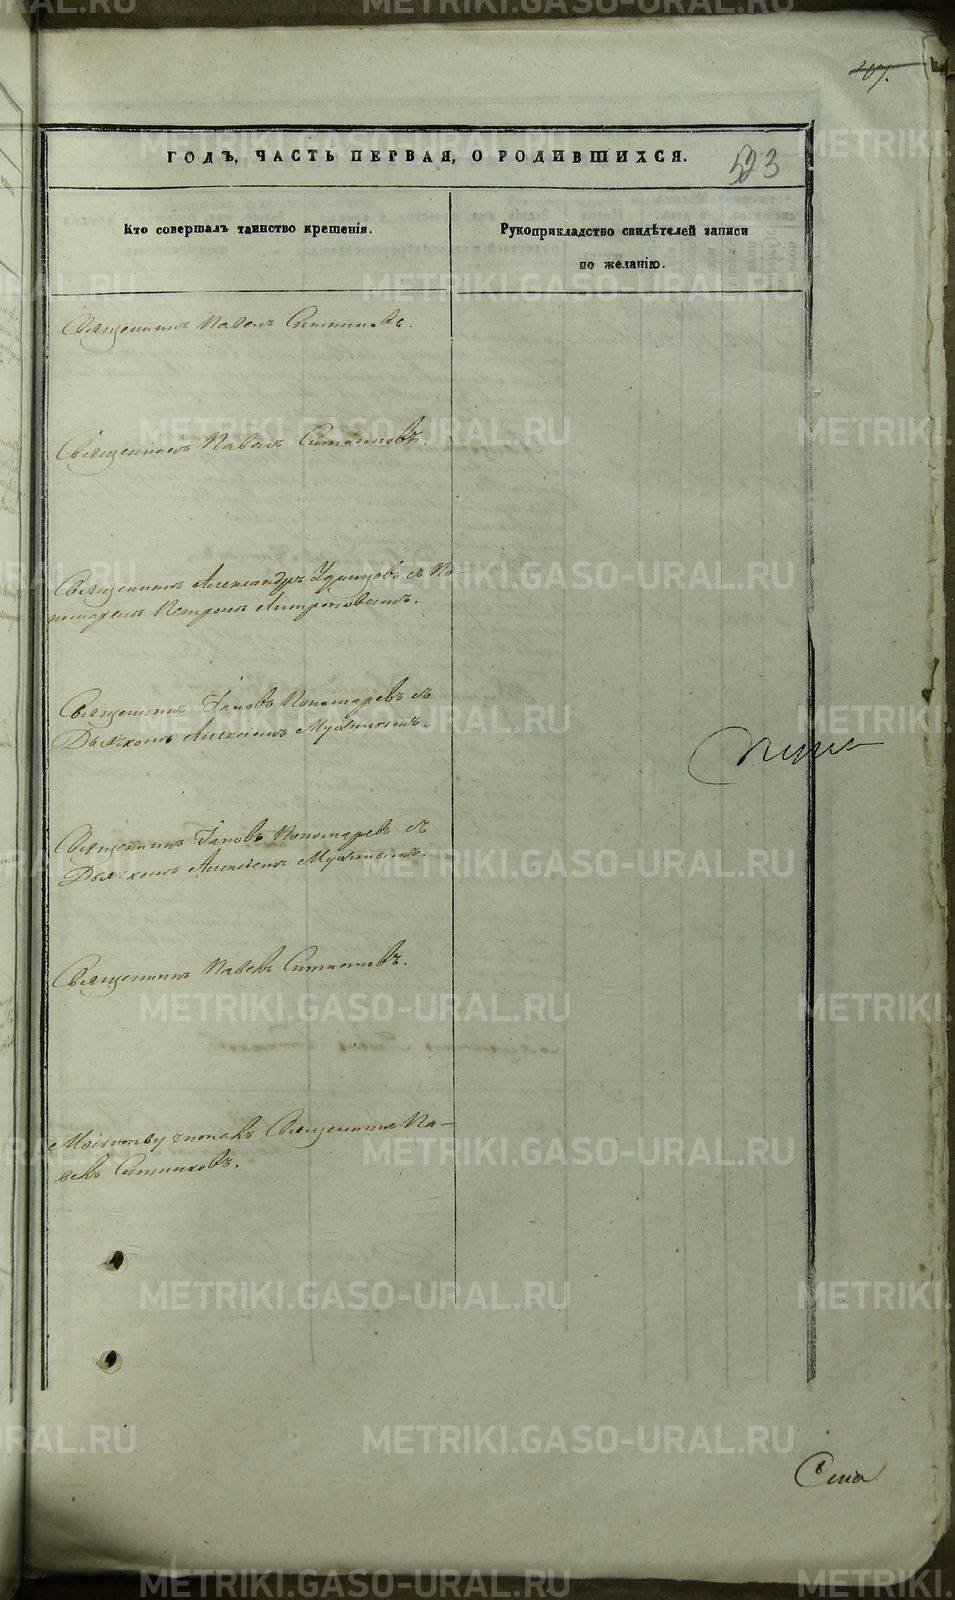 ГОДЪ, ЧАСТЬ ПЕРВАЯ, О РОДИВШИХСЯ.
523
Кто совершалъ таинство крещенія.
Рукоприкладство свидѣтелей записи
по желанію.
Священникъ Павелъ Ситниковъ.
Священникъ Павелъ Ситниковъ.
Священникъ Александръ Удинцовъ съ По
номаремъ Петромъ
Священникъ Іаковъ Пономаревъ съ
Дьячкомъ Алексіемъ Мухинымъ.
Священникъ Іаковъ Пономаревъ съ
Дьячкомъ Алексіемъ Мухинымъ.
Священникъ Павелъ Ситниковъ.
Молитву читалъ Священникъ Па-
велъ Ситниковъ.
METRIKI.GASO-URAL.RU